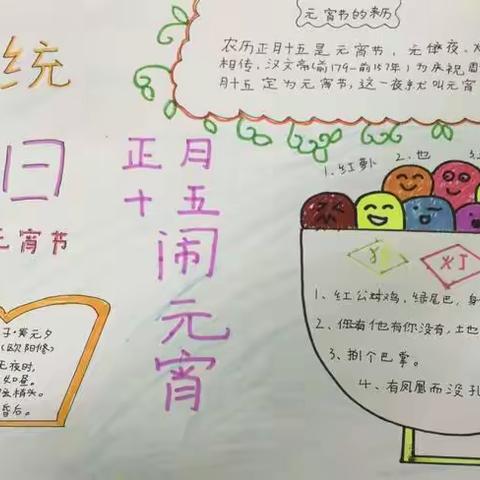 统
日
元宵节
元宵节的来历
农历正月十五是元宵节，元 夜、
相传，汉文帝(前179—前157年)为庆祝
月十五定为元宵节，这一夜就叫元宵
正月
十五
闹
元
宵
1.红萝卜 2.也 3.
灯
1、红公 鸡，绿尾巴，身
2、 有他有你没有，土也
3、捌个巴掌。
4、有凤凰而没孔
子· 元夕
(欧阳修)
元夜时，
如昼。
梢头。
昏后。